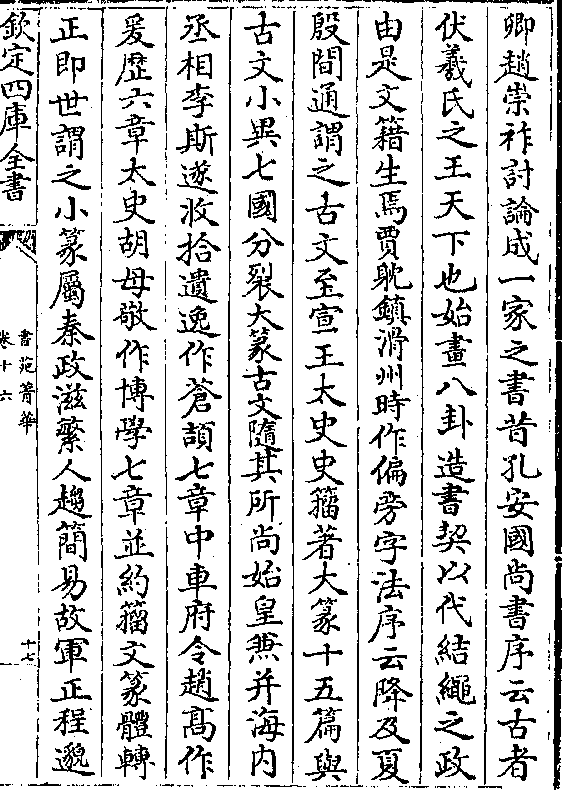 卿趙崇祚討論成一家之書昔孔安國尚書序云古者
伏羲氏之王天下也始畫八卦造書契以代結繩之政
由是文籍生焉賈耽鎮滑州時作偏旁字法序云降及夏
殷間通謂之古文至宣王太史史籀著大篆十五篇與
古文小異七國分裂大篆古文隨其所尚始皇兼并海内
丞相李斯遂收拾遺逸作蒼頡七章中車府令趙高作
爰歷六章太史胡母敬作博學七章並約籀文篆體轉
正即世謂之小篆屬秦政滋繁人趨簡易故軍正程邈
欽定四庫全書
書苑菁華
卷十六
十七